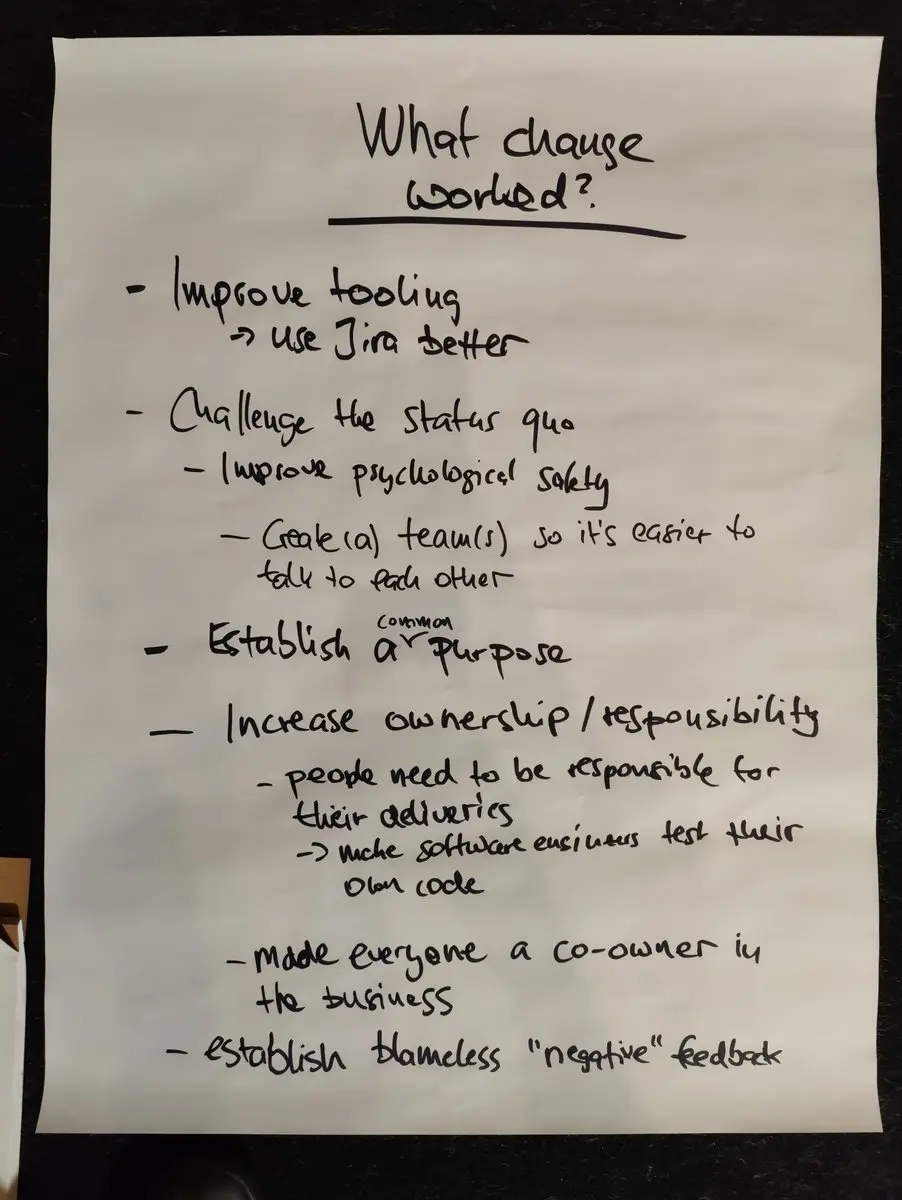 What change
worked?
- Improve tooling
→ use Jira better
- Challenge the status quo
- Improve psychological safety
- Create (a) team(s) so it's easier to
talk to each other
- Establish a common purpose
- Increase ownership / responsibility
- people need to be responsible for
their deliveries
→ make software engineers test their
own code
- made everyone a co-owner in
the business
- establish blameless "negative" feedback